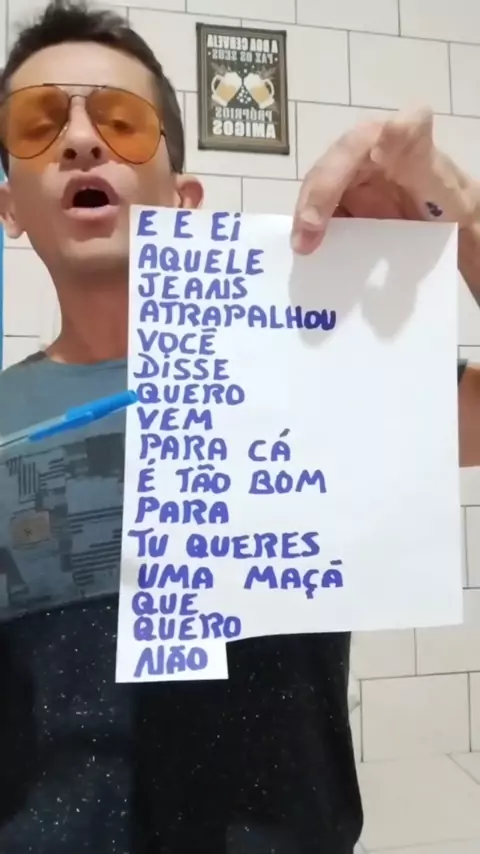 A BOA CERVEJA
FAZ OS SEUS
PRÓPRIOS
AMIGOS
E E Ei
AQUELE
JEANS
ATRAPALHOU
VOCÊ
DiSSE
QUERO
VEM
PARA CÁ
É TÃO BOM
PARA
TU QUERES
UMA MAÇÃ
QUE
QUERO
NÃO